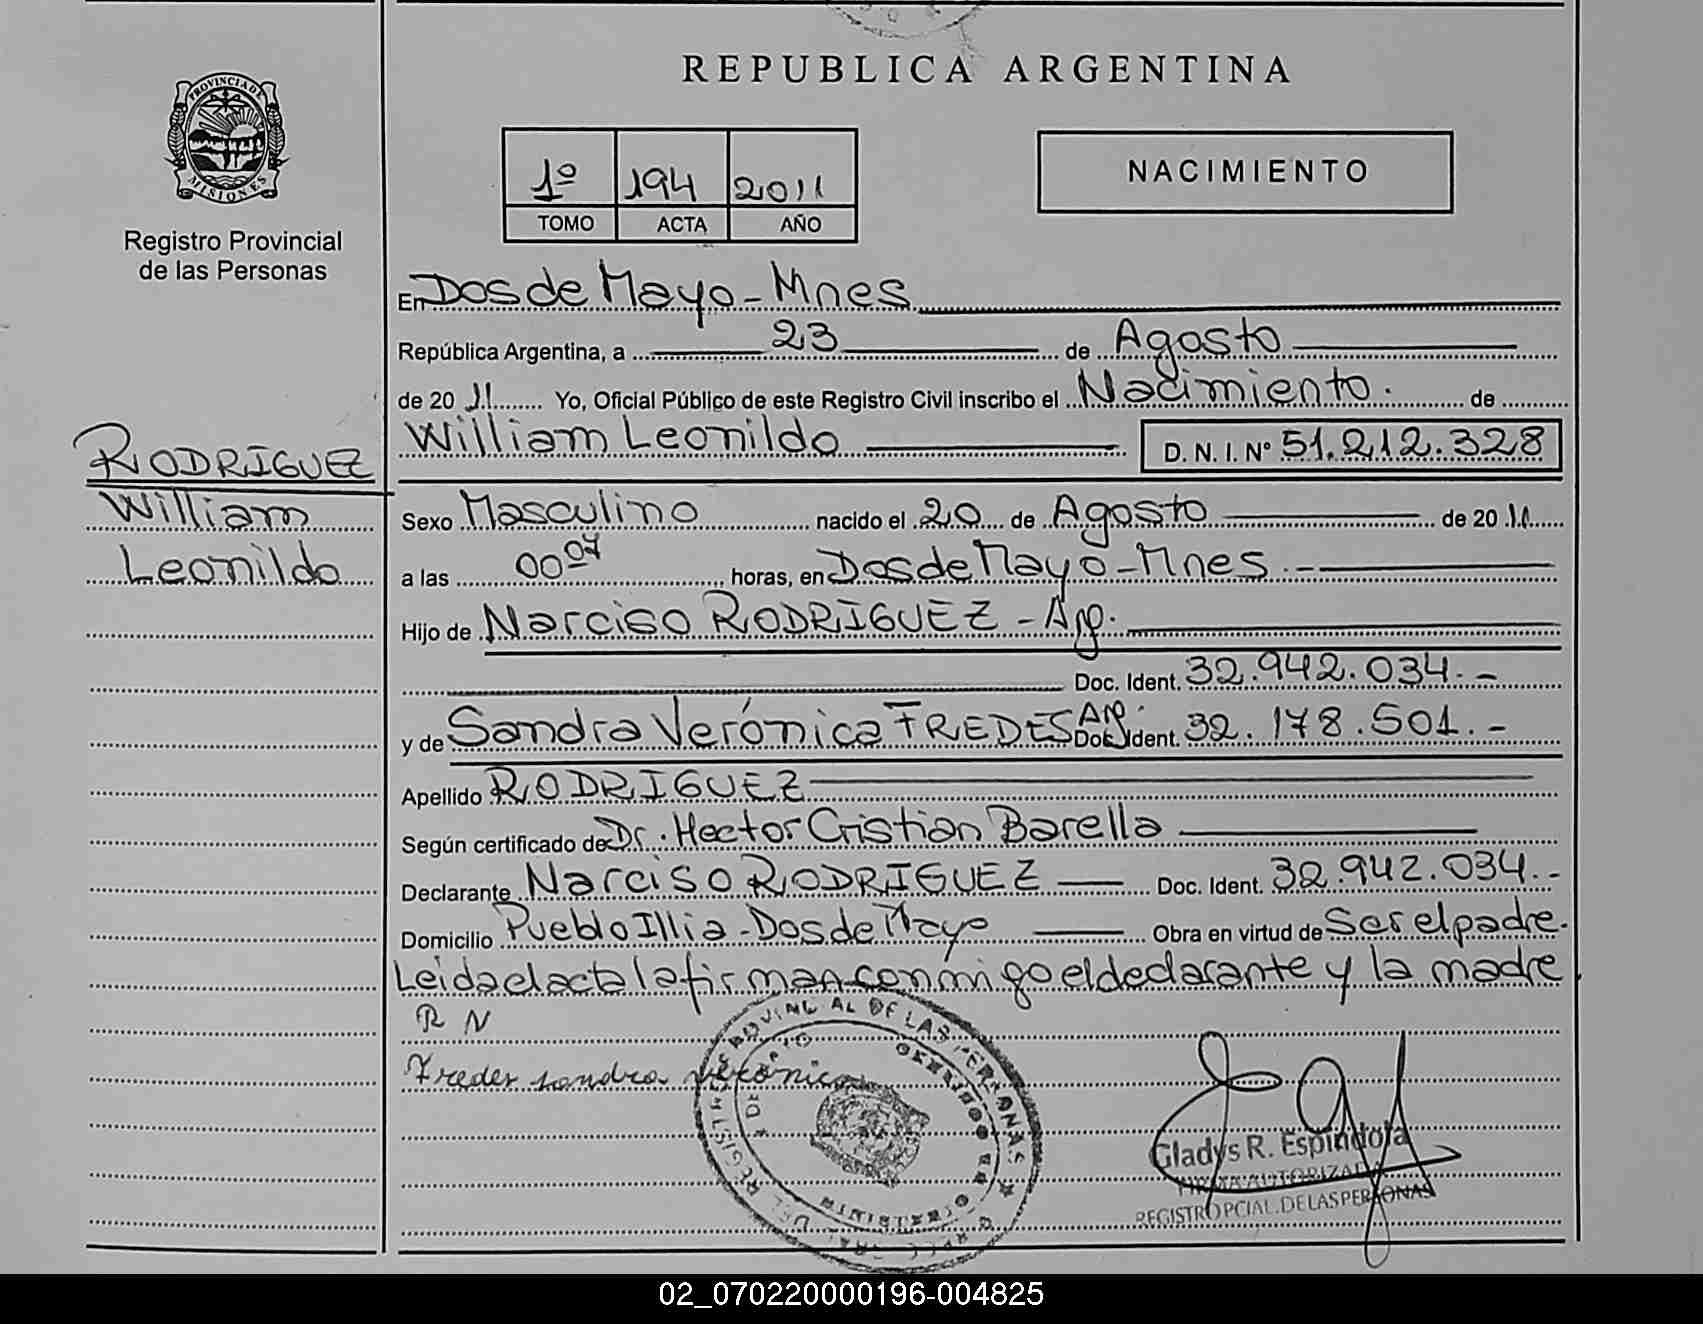 REPUBLICA ARGENTINA
PROVINCIA DE MISIONES
Registro Provincial
de las Personas
1º 194 2011
TOMO ACTA AÑO
NACIMIENTO
En Dos de Mayo - Mnes
República Argentina, a 23 de Agosto
de 2011 Yo, Oficial Público de este Registro Civil inscribo el Nacimiento. de
William Leonildo D. N. I. Nº 51.212.328
RODRIGUEZ
William
Leonildo
Sexo Masculino nacido el 20 de Agosto de 2011
a las 00 07 horas, en Dos de Mayo - Mnes.-
Hijo de Narciso RODRIGUEZ - Arg.
Doc. Ident. 32.942.034.-
y de Sandra Verónica FREDES Arg. Doc. Ident. 32.178.501.-
Apellido RODRIGUEZ
Según certificado de Dr. Hector Cristian Barella
Declarante Narciso RODRIGUEZ Doc. Ident. 32.942.034.-
Domicilio Pueblo Illia - Dos de Mayo Obra en virtud de Ser el padre.
Leida el acta la firman conmigo el declarante y la madre.
R N
Fredes sandra veronica
Gladys R. Espindola
FIRMA AUTORIZADA
REGISTRO PCIAL. DE LAS PERSONAS
02_070220000196-004825